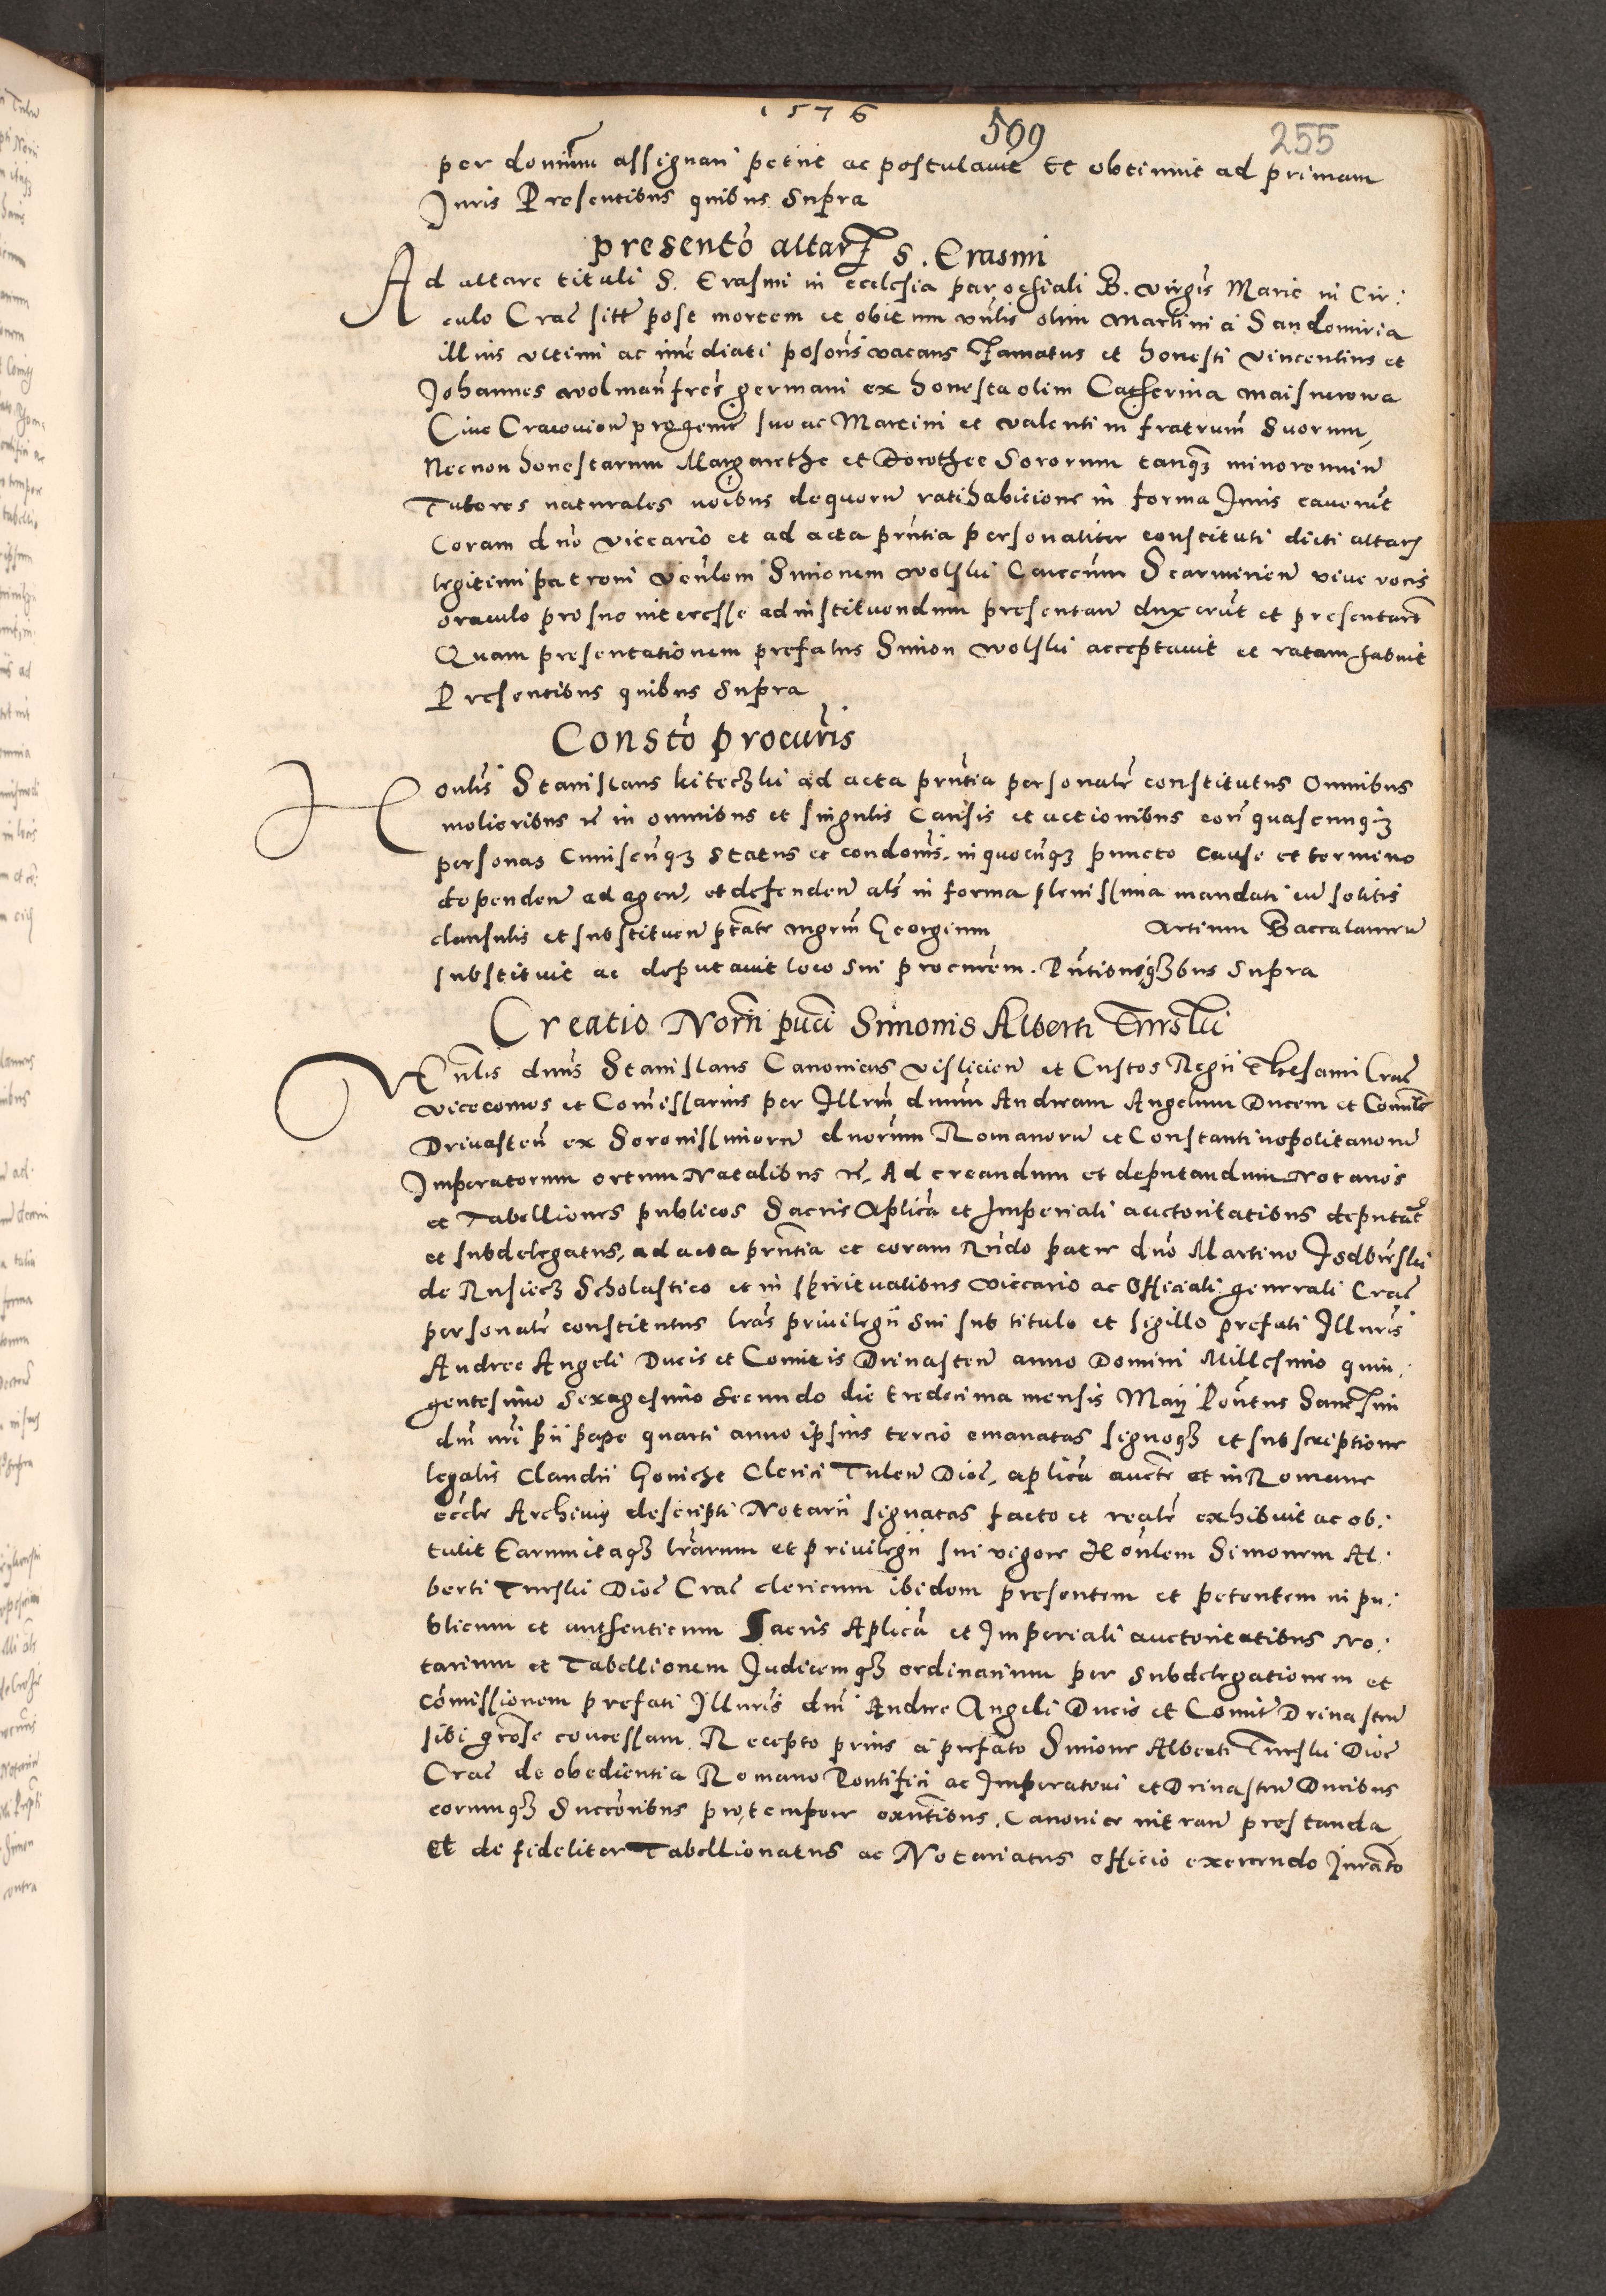 1576
509
255
per dominum assignari petiit ac postulavit Et obtinuit ad primam
Juris Presentibus quibus supra
presento altaris S. Erasmi
Ad altare tituli S. Erasmi in ecclesia parochiali B. virgis Marie in Cir:
culo Crac sitt post mortem et obitum vnlis olim Martini a Sandomiria
illius vltimi ac immediati posoris vacans Famatus et honesti vincentius et
Johannes wolman fres germani ex honesta olim Catherina maisnerowa
Cive Cracovien progenit suo ac Martini et valentini fratrum suorum,
Necnon honestarum Margarethe et Dorothee Sororum tanqz minorennium
Tutores naturales noibus dequorum ratihabitione in forma Juris caverut
Coram dno viccario et ad acta prntia personaliter constituti dicti altaris
legitimi patroni venlem Simonem wolski Cantorum Scarmirien vive vocis
oraculo pro suo interesse ad instituendum presentan duxerut et presentart
Quam presentationem prefatus Simon wolski acceptavit et ratam habuit
Presentibus quibus supra
Consto procuris
Honlis Stanislaus kiteczki ad acta prntia personalr constitutus Omnibus
melioribus re in omnibus et singulis Causis et actionibus con quascunqz
personas Cuiuscunqz status et condonis, in quocunqz puncto cause et termino
dependen ad agen, et defenden als in forma plenissima mandati cu solitis
clausulis et substituen ptate mgrm Georgium Artium Baccalaureu
substituit ac deputavit loco sui procurem. Pntibusqzbus supra
Creatio Norii puci Simonis Alberti Turski
Venlis dnus Stanislaus Canonicus vislicien et Custos Regii Thesauri Crac
vicecomes et Comissarius per Illrm dnum Andream Angelum Ducem et Comite
Drivasten ex Serenissimoru dnorum Romanoru et Constantinopolitanoru
Imperatorum ortum Natalibus re, Ad creandum et deputandum Notarios
et Tabelliones publicos Sacris Aplica et Imperiali auctoritatibus deputat
et subdelegatus, ad acta prntia et coram Rndo patre dno Martino Isdbinski
de Rusiecz Scholastico et in spiritualibus viccario ac Officiali generali Crac
personalr constitutus lras privilegii sui sub titulo et sigillo prefati Illuris
Andree Angeli Ducis et Comitis Drivasten anno Domini Millesimo quin:
gentesimo sexagesimo secundo die tredecima mensis Maij Pontus Sanctimi
dni nri pii pape quarti anno ipsius tercio emanatas signoqz et subscriptione
legalis Claudii Goniche Clerici Tulen Dioc, aplica aucte et in Romane
eccle Archivis descripti Notarii signatas facto et realr exhibuit ac ob:
tulit Earum itaqz lrarum et privilegii sui vigore Honlem Simonem Al:
berti Turski Dioc Crac clericum ibidem presentem et petentem in pu:
blicum et authenticum Sacris Aplica et Imperiali auctoritatibus No:
tarium et Tabellionem Judicemqz ordinarium per subdelegationem et
comissionem prefati Illuris dni Andree Angeli Ducis et Comit Drivasten
sibi grose concessam. Recepto prius a prefato Simone Alberti Turski Dioc
Crac de obedientia Romano Pontifici ac Imperatori et Drivasten Ducibus
eorumqz Succoribus pro tempore exntibus, Canonice intran prestanda
et de fideliter Tabellionatus ac Notariatus officio exercendo Jurato